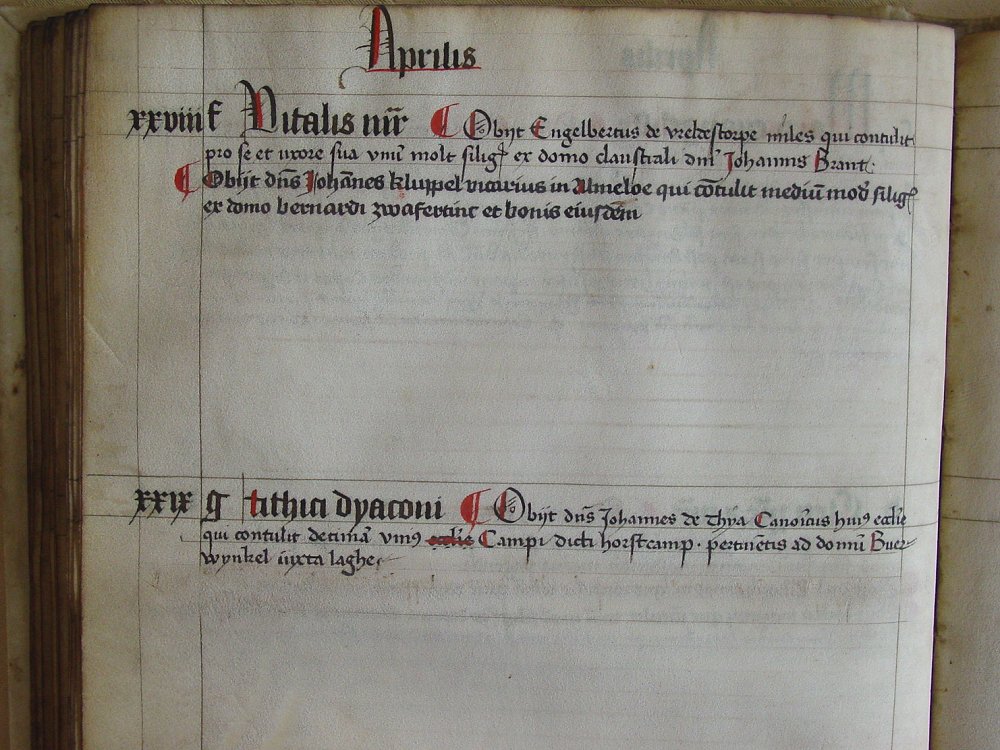 Aprilis
xxviii f Vitalis mr̄ Obijt Engelbertus de vreldestorpe miles qui contulit
pro se et uxore sua vnu̅ molt silig̅ ex domo claustrali dn̅i Johannis Brant.
Obijt dn̅s Joha̅nes kluppel vicarius in Almeloe qui co̅tulit mediu̅ mod̅ silig̅
ex domo bernardi zwafertinc et bonis eiusde̅m
xxix g tithici dyaconi Obijt dn̅s Johannes de Thya Cano̅icus hui9 eccl̅ie
qui contulit decima̅ vni9 eccl̅ie Campi dicti horstcamp. pertine̅tis ad domu̅ Buer-
wynkel iuxta laghe